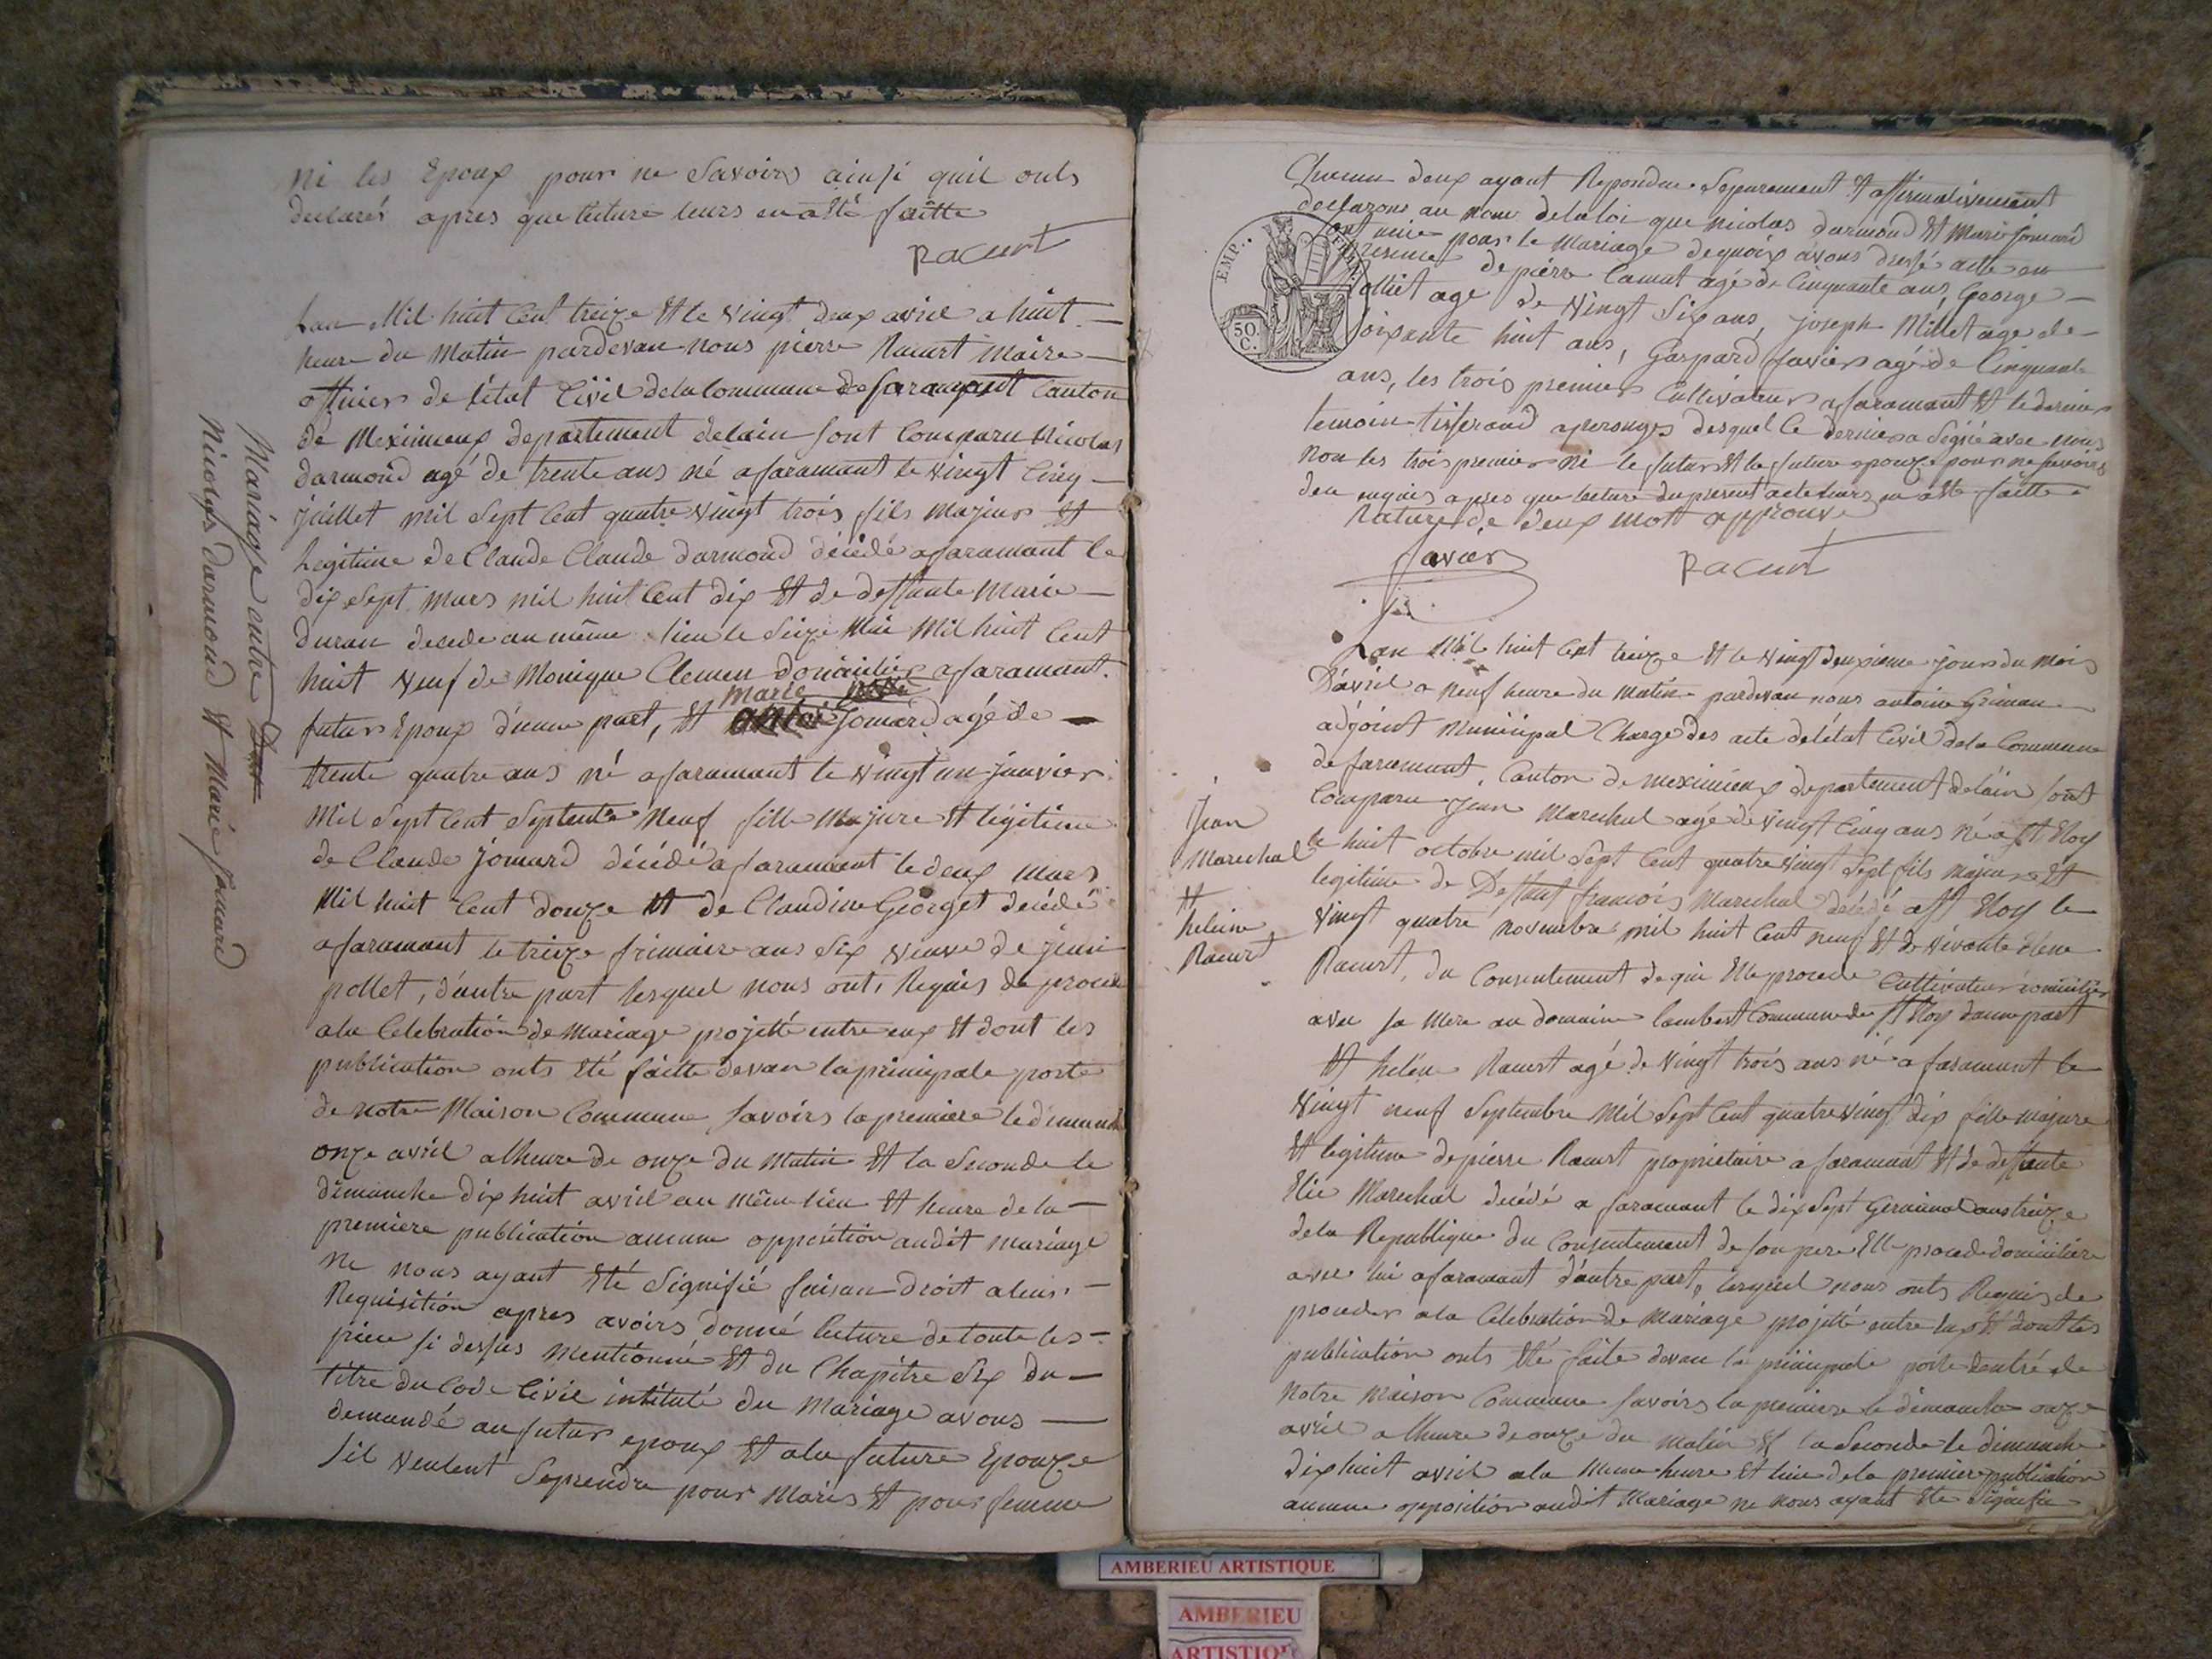 ni les Epoux pour ne Savoirs ainsi quil onts
declarés apres que lecture leurs en a Eté faitte
Racurt
Lan Mil huit Cent treize Et le vingt deux avril a huit
heure du Matin pardevan nous pierre Racurt Maire
officier de létat Civil dela Commune de faramant Canton
de Meximieux departement delain sont Comparu Nicolas
darmond agé de trente ans né a faramant le vingt Cinq
juillet mil Sept Cent quatre vingt trois fils Majeur Et
Legitime de Claude Claude darmond décédé a faramant le
dix Sept mars mil huit Cent dix Et de deffunte Marie
Duran decede au même lieu le Seize Mai Mil huit Cent
huit veuf de Monique Clemen domicilié a faramant
marie
futur Epoux d'unne part, Et Jomard agé de
trente quatre ans né a faramant le vingt un janvier
Mil Sept Cent Septente Neuf fille Majeure Et légitime
de Claude Jomard décédé a faramant le deux mars
Mil huit Cent douze Et de Claudine Georget decédé
a faramant le treize frimaire ans Six veuve de jean
pollet, d'autre part lesquel nous ont Requis de proceder
ala Celebration de Mariage projetté entre eux Et dont les
publication onts Eté faitte devan la principale porte
de notre Maison Commune Savoirs la premiere le dimanche
onze avril a lheure de onze du Matin Et la Seconde le
dimanche dix huit avril au même lieu Et heure de la
premiere publication aucune opposition audit mariage
ne nous ayant Eté Signifié faisan droit a leur
Requisition apres avoirs donné lecture de toute les
piece si dessus mentionné Et du Chapitre Six du
titre du Code Civil intitulé du Mariage avons
demandé au futur epoux Et ala future Epouze
Sil veulent Seprendre pour Maris Et pour femme
Mariage entre
Nicolas darmond Et Marie Jomard
Chacun deux ayant Repondue Separement Et affirmativement
declarons au nom dela loi que nicolas darmond Et Marie Jomard
ont unie pour le Mariage dequoix avons dressé acte en
presence de pierre Camut agé de Cinquante ans, George
agé de vingt Six ans, joseph Millet age de
Soixante huit ans, Gaspard favier agé de Cinquante
ans, les trois premier Cultivateur a faramant Et le dernier
temoin tisserand a perouges desquel le dernier a Signé avec nous
non les trois premier ni le futur Et la future epouze pour ne Savoirs
deu enquis apres que lecture du present acte leurs en a Eté faitte
Rature de deux mott approuvé
favier
Racurt
EMP..
50.
C.
Lan Mil huit Cent treize Et le vingt deuxieme jours du mois
D'avril a neuf heure du matin pardevan nous antoine Griman
adjoint Municipal Charge des acte de létat Civil dela Commune
de faramant, Canton de meximieux departement delain sont
Comparu jean Marechal agé de vingt Cinq ans né a St Eloy
le huit octobre mil Sept Cent quatre vingt Sept fils majeur Et
legitime de Deffunt francois Marechal décédé a St Eloy le
vingt quatre novembre mil huit Cent neuf Et de vivante Elene
Racurt, du Consentement de qui Elle procede Cultivateur domicilier
avec sa Mere au domaine lambert Commune de St Eloy dunne part
Et heléne Racurt agé de vingt trois ans né a faramant le
vingt neuf Septembre Mil Sept Cent quatre vingt dix fille majeure
Et legitime de pierre Racurt proprietaire a faramant Et de deffunte
Marechal décédé a faramant le dix Sept Germinal ans treize
dela Republique du Consentement de Son pere Elle procede domiciliere
avec lui a faramant d'autre part, lesquel nous onts Requis de
proceder ala Celebration de Mariage projetté entre eux Et dont les
publication onts Eté faite devan la principale porte dentré de
Notre Maison Commune Savoirs la premiere le dimanche onze
avril a lheure de onze du matin Et la Seconde le dimanche
dix huit avril ala Meme heure Et lieu dela premiere publication
aucune opposition audit Mariage ne nous ayant Eté Signifie
jean
Marechal
Et
heleine
Racurt
AMBERIEU ARTISTIQUE
AMBERIEU
ARTISTIQUE